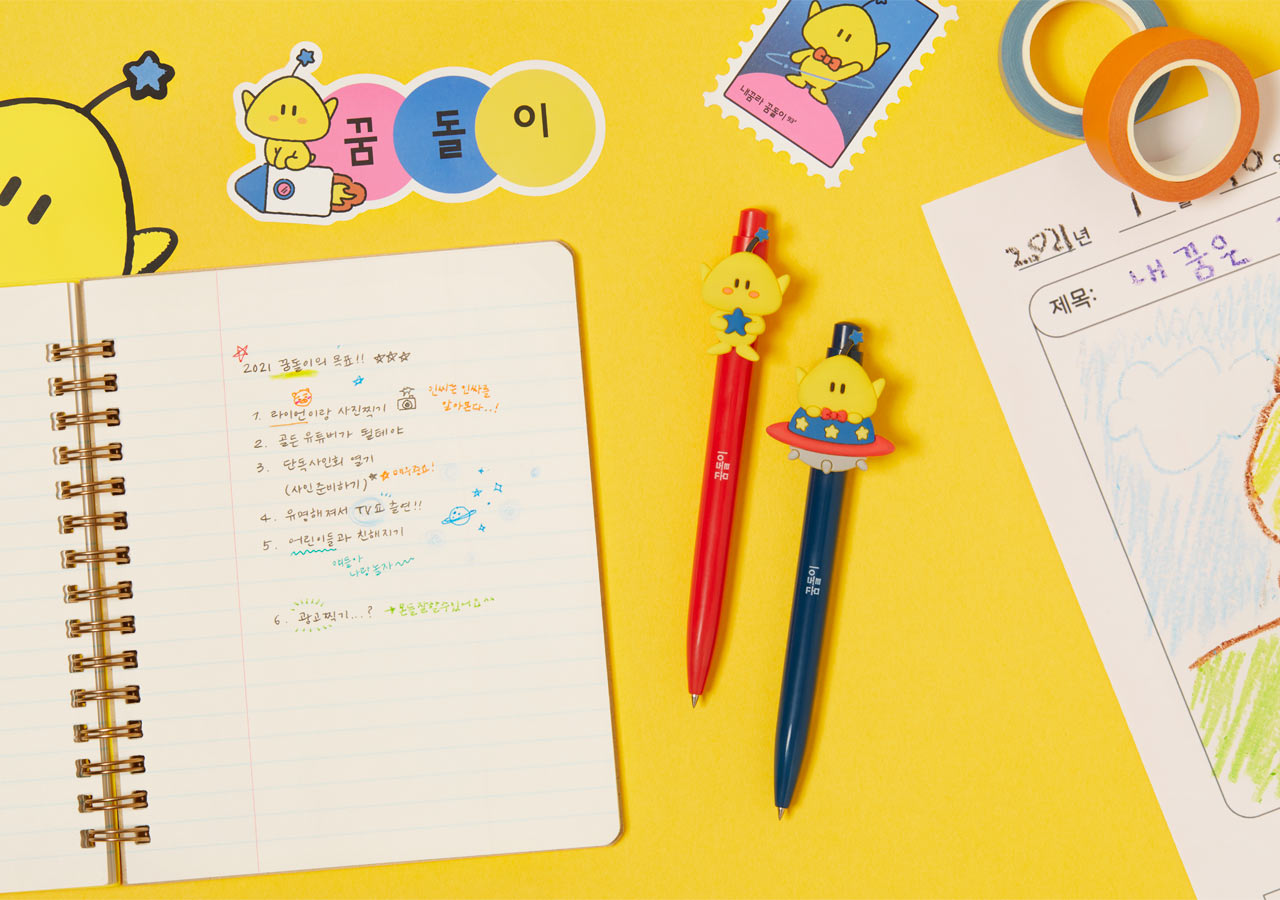 꿈 돌 이
내꿈과 꿈돌이 93'
2021 꿈돌이의 목표!!
1. 라이언이랑 사진찍기
인싸는 인싸를
알아본다..!
2. 골든 유튜버가 될테야
3. 단독사인회 열기
(사인준비하기)
매우중요!
4. 유명해져서 TV쇼 출연!!
5. 어린이들과 친해지기
얘들아
나랑놀자
6. 광고찍기...?
꿈돌이
꿈돌이
2021년 1월 10
제목: 내 꿈은